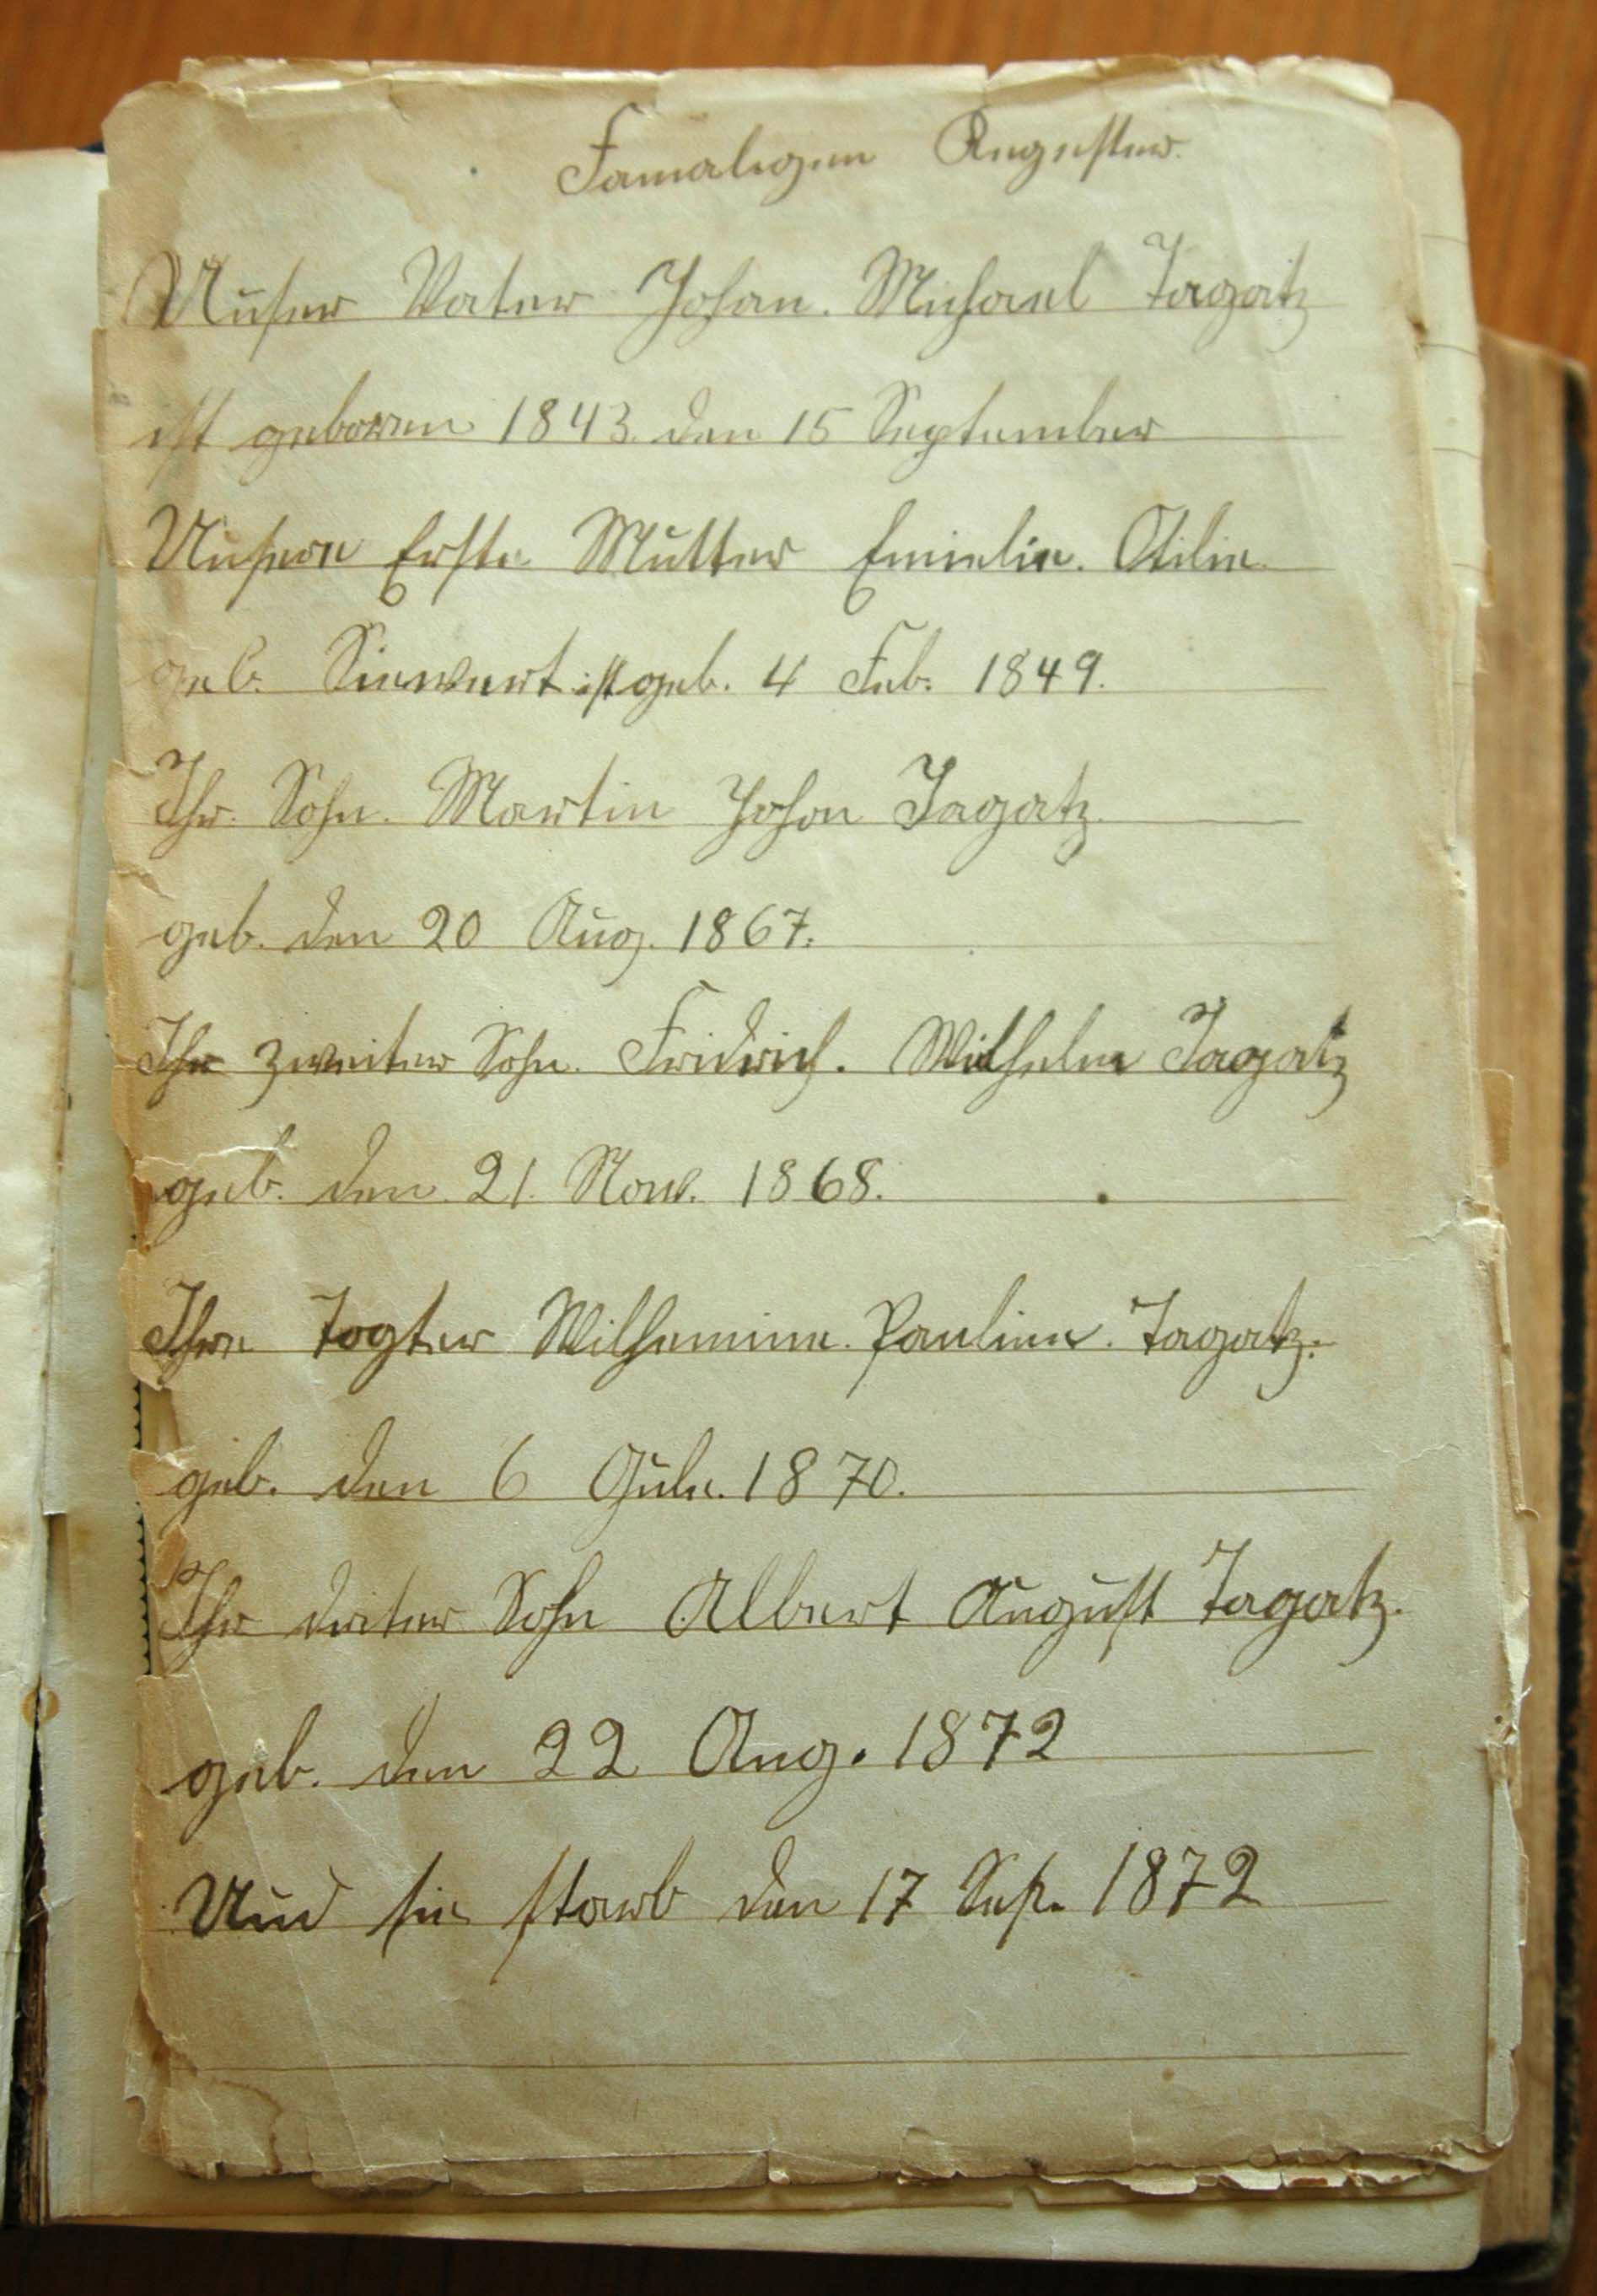 Famaliegen Register.
Unser Vater Johan. Michael Tagatz
ist geboren 1843. den 15 September
Unsere Erste Mutter Emielie. Otilie
geb. Siewert ist geb. 4 Feb. 1849.
Ihr. Sohn. Martin Johan Tagatz.
geb. den 20 Aug. 1867.
Ihr zweiter Sohn. Fridrich. Wilhelm Tagatz
geb. den 21. Now. 1868.
Ihre Togter Wilhemine. Pauline. Tagatz.
geb. den 6 1870.
Ihr driter Sohn Albert August Tagatz.
geb. den 22 Aug. 1872
Und sie starb den 17 Sep. 1872